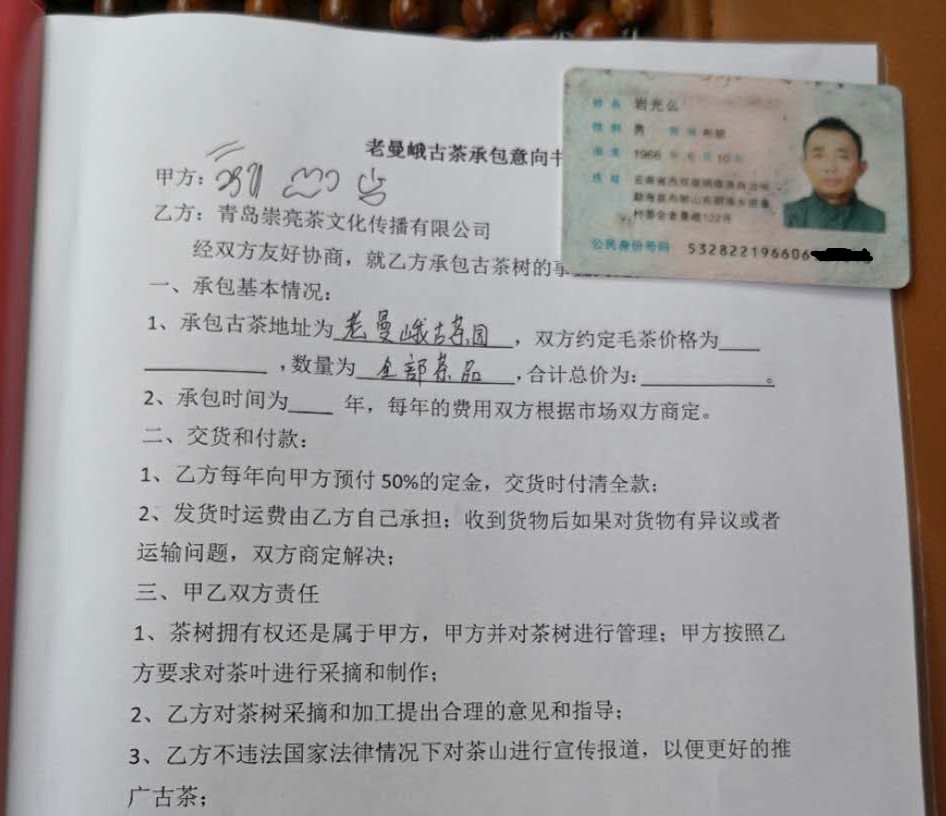 老曼峨古茶承包意向书
甲方：
乙方：青岛崇亮茶文化传播有限公司
经双方友好协商，就乙方承包古茶树的事
一、承包基本情况：
1、承包古茶地址为老曼峨古茶园，双方约定毛茶价格为____
____________，数量为全部茶品，合计总价为：____________。
2、承包时间为____年，每年的费用双方根据市场双方商定。
二、交货和付款：
1、乙方每年向甲方预付50%的定金，交货时付清全款；
2、发货时运费由乙方自己承担；收到货物后如果对货物有异议或者
运输问题，双方商定解决；
三、甲乙双方责任
1、茶树拥有权还是属于甲方，甲方并对茶树进行管理；甲方按照乙
方要求对茶叶进行采摘和制作；
2、乙方对茶树采摘和加工提出合理的意见和指导；
3、乙方不违法国家法律情况下对茶山进行宣传报道，以便更好的推
广古茶；
姓名 岩光么
性别 男 民族 布朗
出生 1966年6月10日
住址 云南省西双版纳傣族自治州
勐海县布朗山布朗族乡班章
村委会老曼峨122号
公民身份号码 532822196606